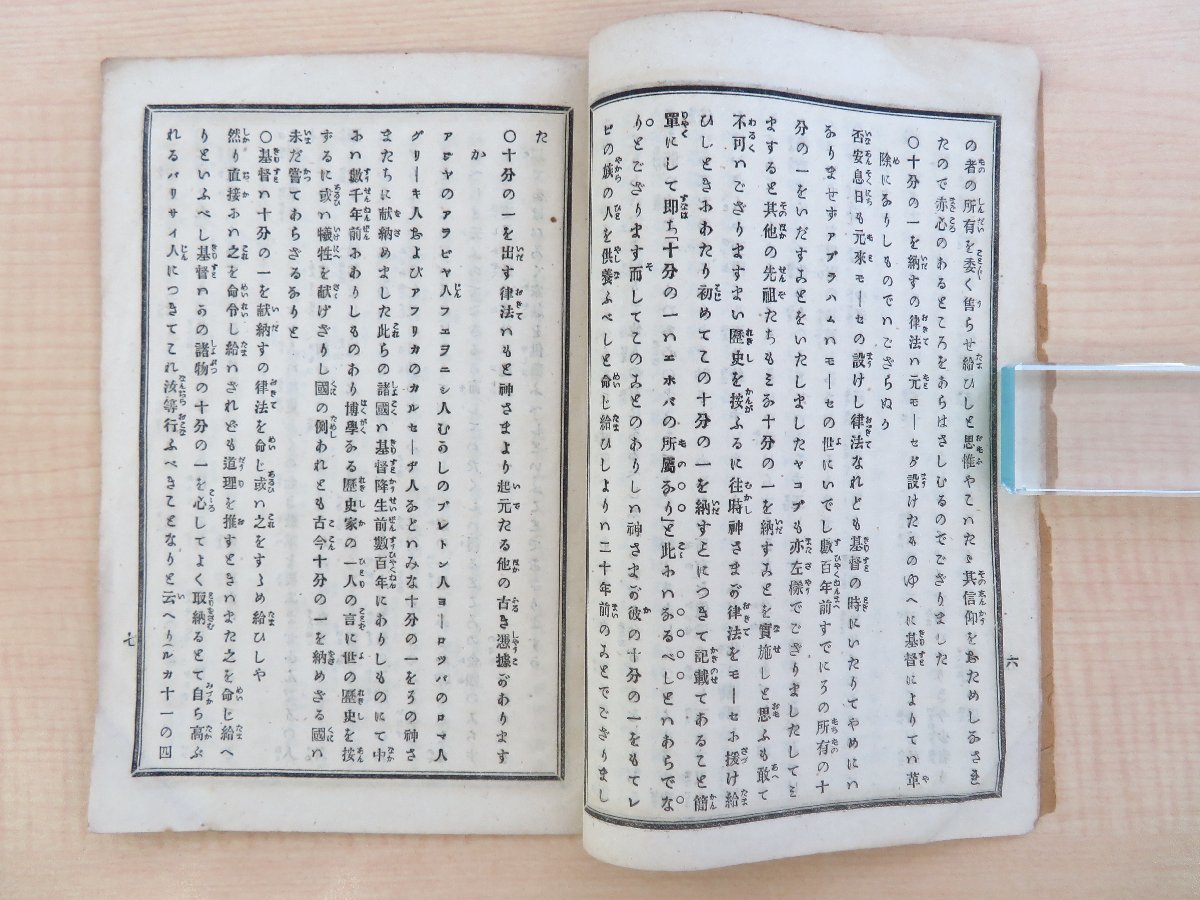 の者の所有を委く售らせ給ひしと思惟やていたゞ其信仰をためしなさま
たので赤心のあるところをあらはさしむるのでござりました
〇十分の一を納すの律法ハ元モーセが設けたものゆへに基督によりてハ革
除になりしものでハござらぬり
否安息日も元來モーセの設けし律法なれども基督の時にいたりてやめにハ
なりませずアブラハムハモーセの世にいでし數百年前すでにその所有の十
分の一をいだすことをいたしましたヤコブも亦左様でござりましたしてミ
ますると其他の先祖たちもミな十分の一を納すことを實施しと思ふも敢て
不可ハござりますまい歷史を按ふるに往時神さまが律法をモーセに授け給
ひしときにあたり初めてこの十分の一を納すことにつきて記載てあること簡
單にして即ち「十分の一ハエホバの所屬なり」と此にハなるべしとハあらでな
りとござります而してこのことのありしハ神さまが彼の十分の一をもてレ
ビの族の人を供養ふべしと命じ給ひしよりハ二十年前のことでござりまし
六
た
か
〇十分の一を出す律法ハもと神さまより起元たる他の古き憑據がわります
アセヤのアラビヤ人フェヲニシ人むかしのブレトン人ヨーロッパのロマ人
グリーキ人およびアフリカのカルセーヂ人などハみな十分の一をその神さ
またちに献納めました此らの諸國ハ基督降生前數百年にありしものにて中
にハ數千年前にありしものあり博學なる歷史家の一人の言に世の歷史を按
ずるに或ハ犠牲を献げざりし國の例あれども古今十分の一を納めざる國ハ
未だ嘗てあらざるなりと
〇基督ハ十分の一を献納すの律法を命じ或ハ之をすゝめ給ひしや
然り直接にハ之を命令し給ハざれども道理を推すときハまた之を命じ給へ
りといふべし基督ハかの諸物の十分の一を心してよく取納るとて自ら高ぶ
れるパリサイ人につきてこれ汝等行ふべきことなりと云へり(ルカ十一の四
七